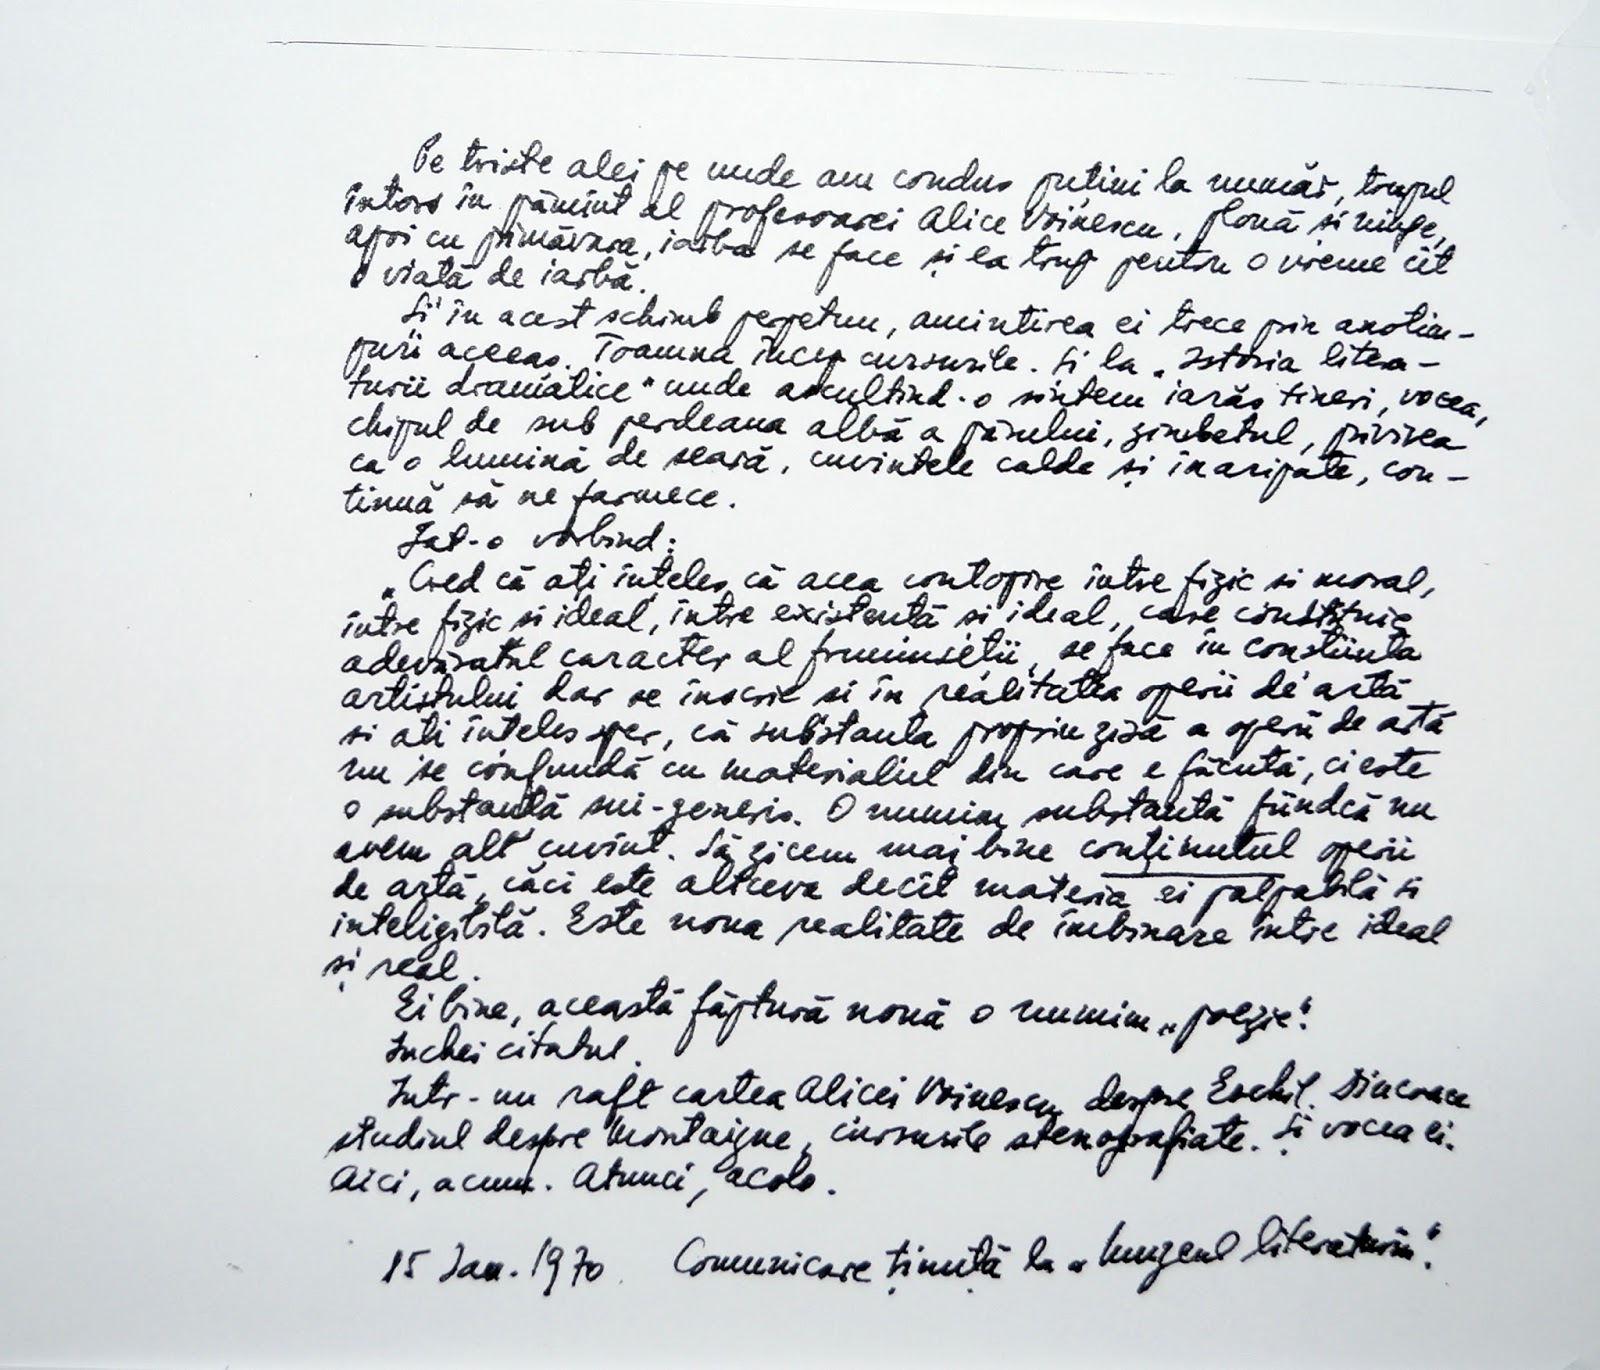 Pe triste alei pe unde am condus puțini la număr, trupul
întors în pămînt al profesoarei Alice Voinescu, plouă si ninge,
apoi cu primăvara, iarba se face și ea trup pentru o vreme cît
o viată de iarbă.
Si în acest schimb perpetuu, amintirea ei trece prin anotim-
puri aceeas. Toamna încep cursurile. Si la „Istoria litera-
turii dramatice" unde ascultînd-o sîntem iarăs tineri, vocea,
chipul de sub perdeaua albă a părului, zîmbetul, privirea
ca o lumină de seară, cuvintele calde și înaripate, con-
tinuă să ne farmece.
Iat-o vorbind:
„Cred că ați înțeles că acea contopire între fizic si moral,
între fizic si ideal, între existentă si ideal, care constituie
adevăratul caracter al frumusetii, se face în constiinta
artistului dar se înscrie si în realitatea operii de artă
si ati înteles sper, că substanta propriu zisă a operii de artă
nu se confundă cu materialul din care e făcută, ci este
o substantă sui-generis. O numim substantă fiindcă nu
avem alt cuvînt. Să zicem mai bine conținutul operii
de artă, căci este altceva decît materia ei palpabilă si
inteligibilă. Este noua realitate de îmbinare între ideal
și real.
Ei bine, această făptură nouă o numim „poezie".
Inchei citatul.
Intr-un raft cartea Alicei Voinescu despre Eschil. Dincoace
studiul despre Montaigne, cursurile stenografiate. Și vocea ei.
Aici, acum. Atunci, acolo.
15 Ian. 1970. Comunicare ținută la „Muzeul literaturii".